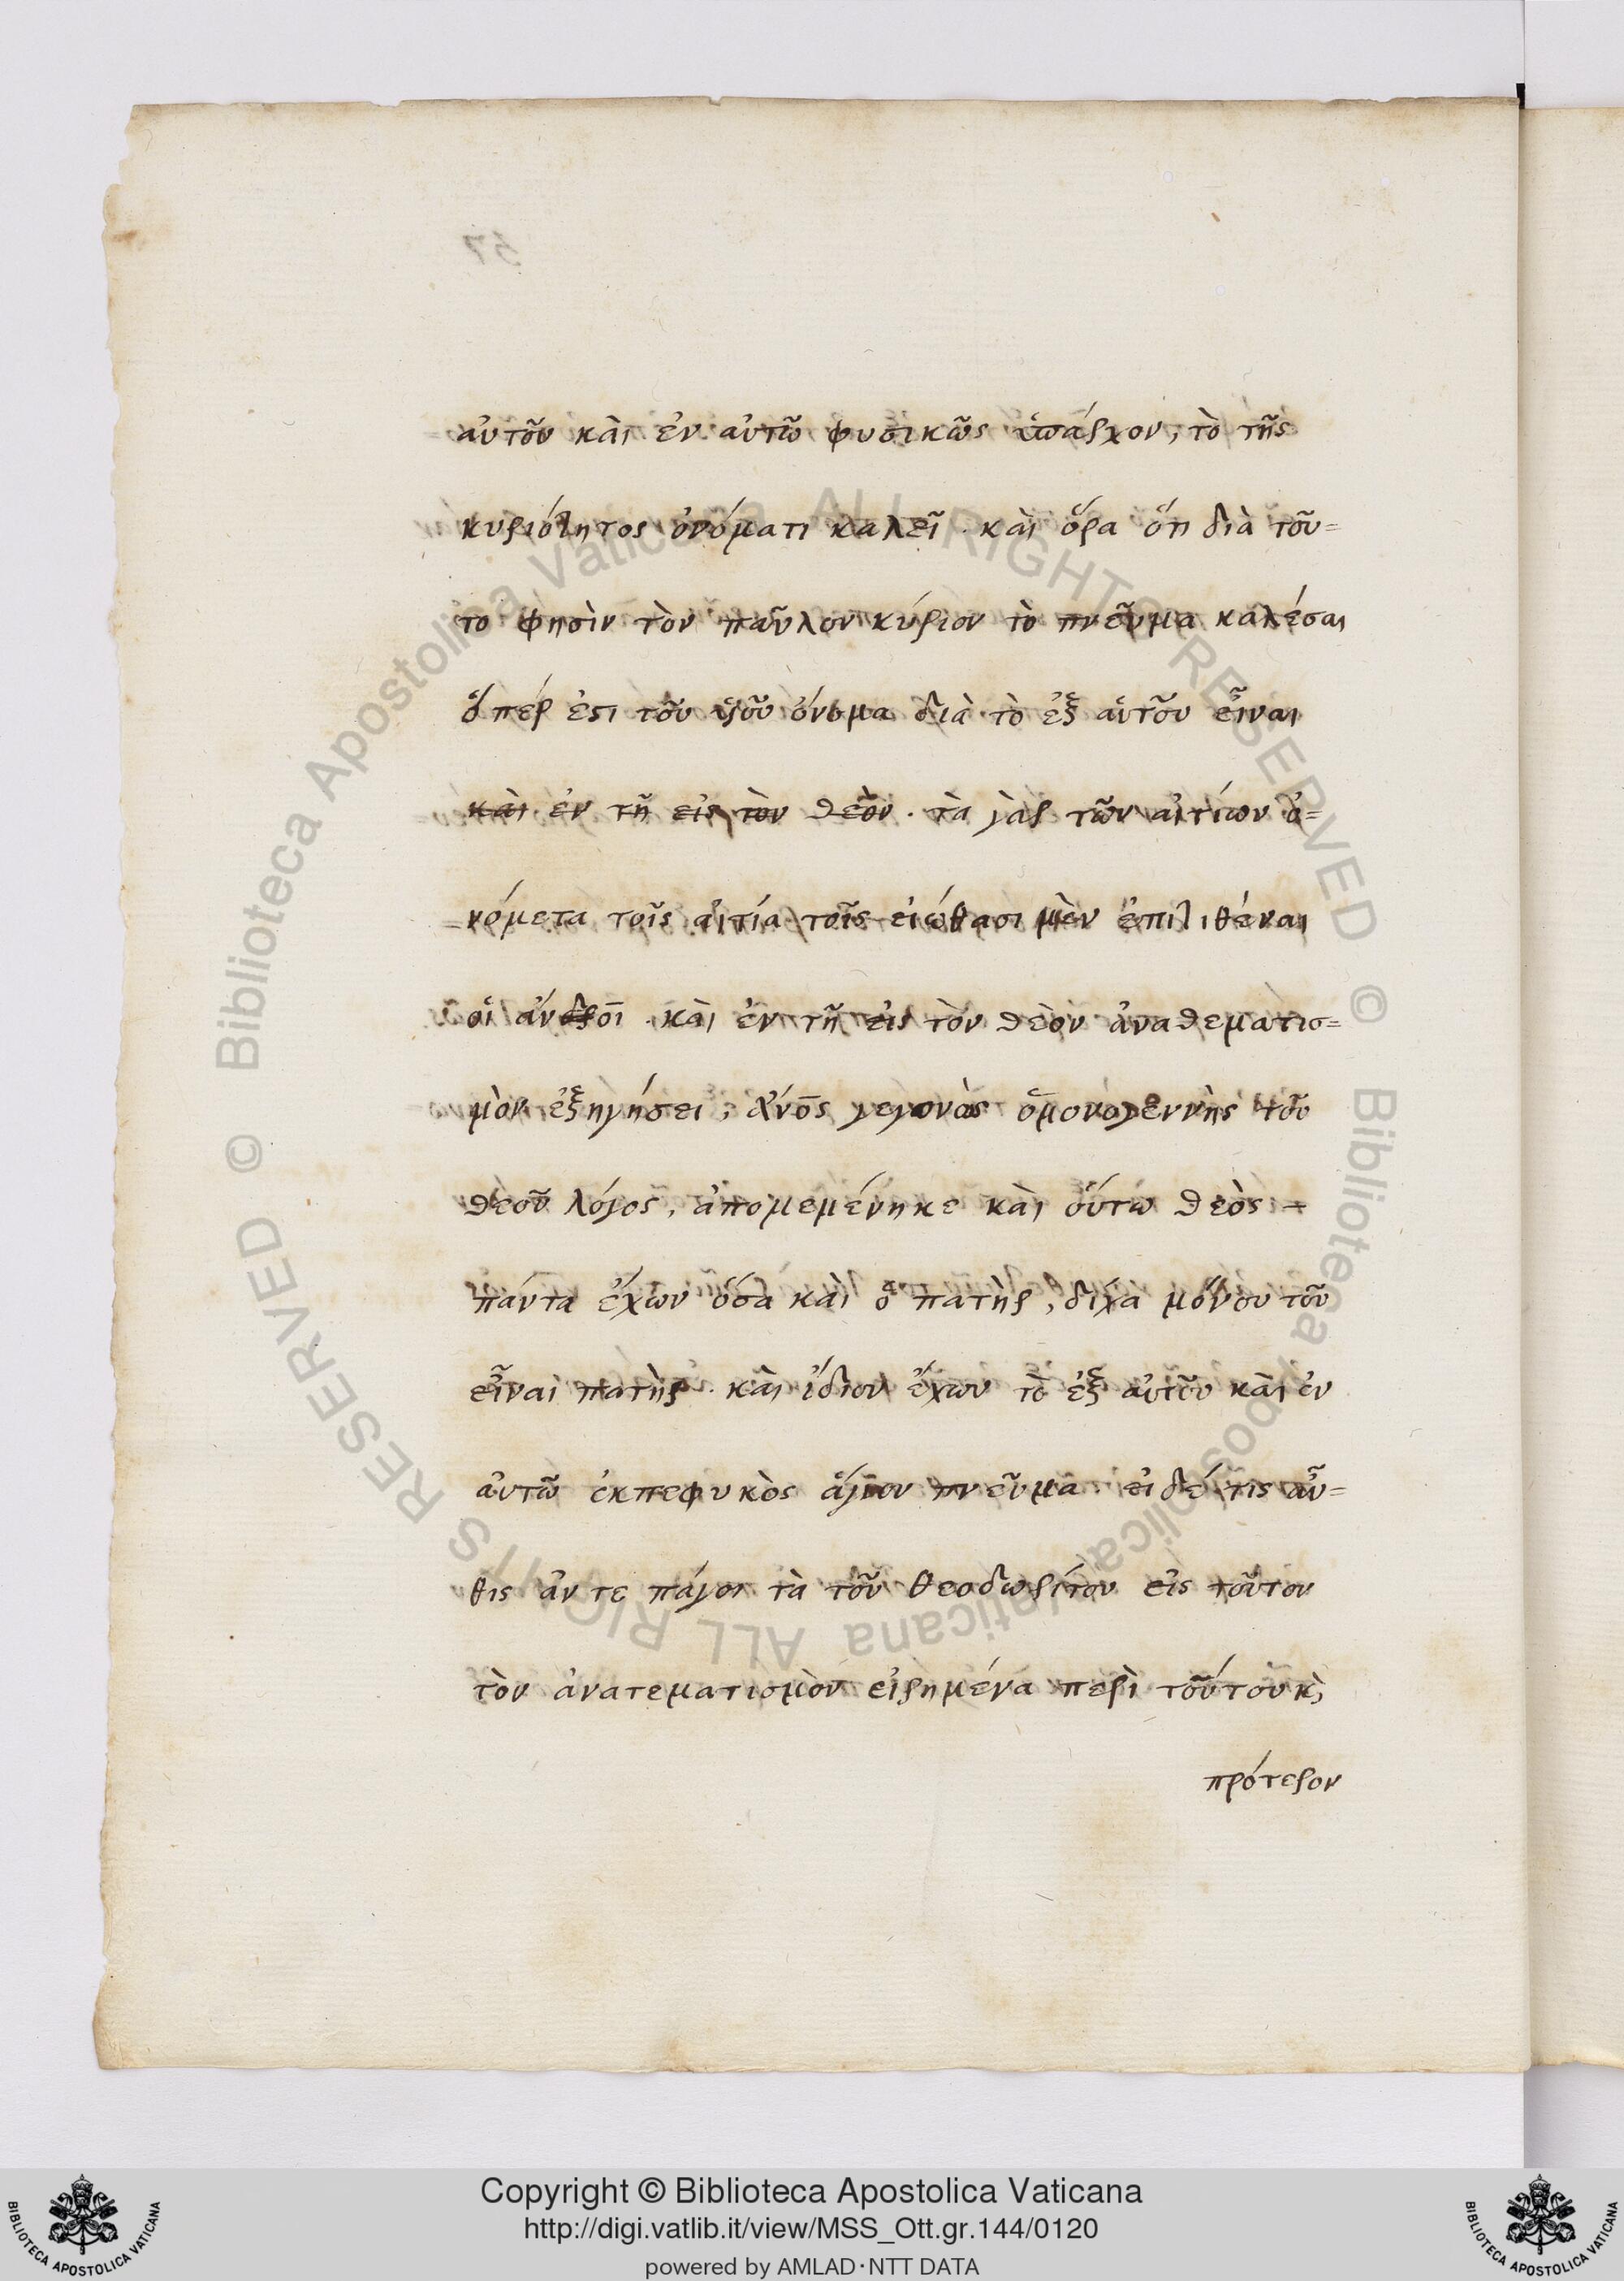 αὐτοῦ κὰι ἐν αὐτῶ φυσικῶς ὑπάρχον, τὸ τῆς
κυριότητος ὀνόματι καλεῖ. κὰι ὅρα ὅτι διὰ τοῦ=
το φησὶν τὸν παῦλον κύριον τὸ πνεῦμα καλέσαι
ὅπέρ ἐστι τοῦ ὑοῦ ὄνομα διὰ τὸ ἐξ αὐτοῦ εἶναι
κὰι ἐν τῆ εἰς τὸν θεὸν. τὰ γὰρ τῶν αἰτίων ὀ=
νόμετα τοῖς αἰτία τοῖς εἰώθασι μὲν ἐπιτιθέναι
οἱ ἀνοι. κὰι ἐν τῆ εἰς τὸν θεὸν ἀναθεματισ=
μὸν ἐξηγήσει, ἀνος γεγονὼς ὁμονογεννὴς τοῦ
θεοῦ λόγος, ἀπομεμένηκε κὰι οὕτω θεὸς =
πάντα ἔχων ὅσα κὰι ὁ πατὴρ, δίχα μόνου τοῦ
εἶναι πατὴρ. κὰι ἴδιον ἔχων τὸ ἐξ αὐτοῦ κὰι ἐν
αὐτῶ ἐκπεφυκὸς ἅγιον πνεῦμα. εἰ δέ τις αὖ=
θις ἀν τε πάγοι τὰ τοῦ θεοδωρίτου εἰς τοῦτον
τὸν ἀνατεματισμὸν εἰρημένα περὶ τοῦτου κὶ
πρότερον
Copyright © Biblioteca Apostolica Vaticana
http://digi.vatlib.it/view/MSS_Ott.gr.144/0120
powered by AMLAD·NTT DATA